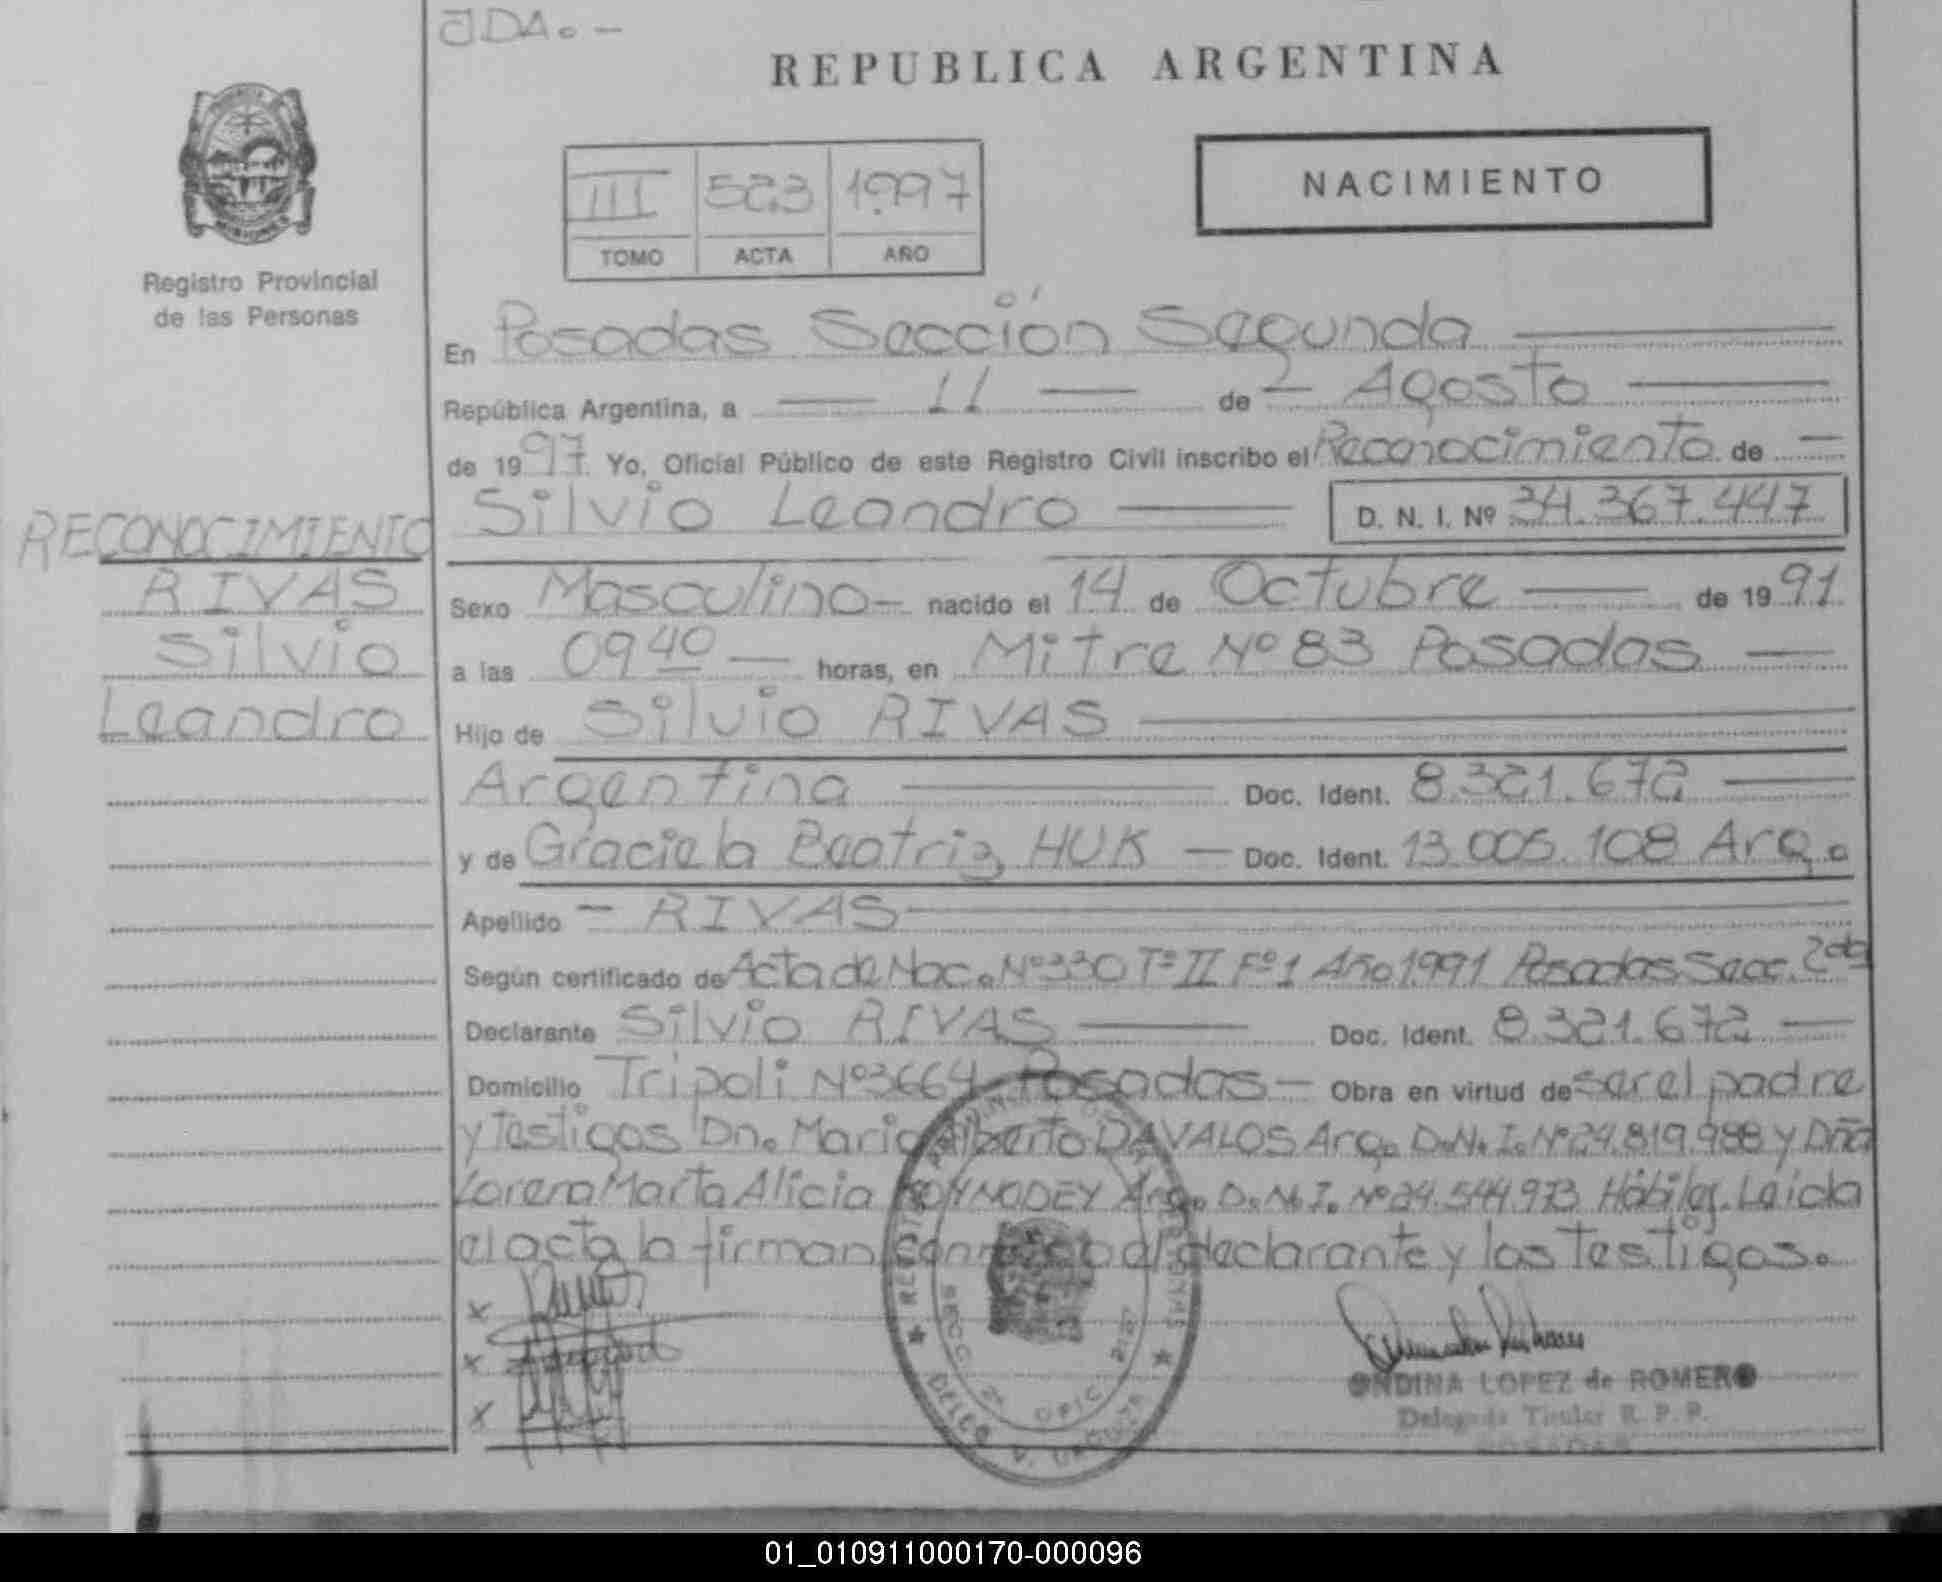 JDA. -
REPUBLICA ARGENTINA
NACIMIENTO
III 523 1.997
TOMO ACTA AÑO
Registro Provincial
de las Personas
En Posadas Sección Segunda
República Argentina, a 11 de Agosto
de 1997. Yo, Oficial Público de este Registro Civil inscribo el Reconocimiento de
Silvio Leandro D. N. I. Nº 34.367.447
RECONOCIMIENTO
RIVAS
Silvio
Leandro
Sexo Masculino - nacido el 14 de Octubre de 1991
a las 09 40 horas, en Mitre Nº 83 Posadas
Hijo de Silvio RIVAS
Argentina Doc. Ident. 8.321.672
y de Graciela Beatriz HUK - Doc. Ident. 13.005.108 Arg.
Apellido - RIVAS
Según certificado de Acta de Nac. Nº 330 Tº II Fº 1 Año 1991 Posadas Secc. 2da
Declarante Silvio RIVAS Doc. Ident. 8.321.672
Domicilio Tripoli Nº 3664 Posadas - Obra en virtud de ser el padre
y testigos Dn. Mario Alberto DAVALOS Arg. D.N.I. Nº 24.819.988 y Dña
Lorena Marta Alicia Arg. D.N.I. Nº 24.544.973 Hábiles. Leida
el acta la firman conmigo el declarante y los testigos.
x
x
x
SECC. 2ª OFIC.
DELEG. V. URQUIZA
ONDINA LOPEZ de ROMERO
Delegada Titular R. P. P.
POSADAS
01_010911000170-000096